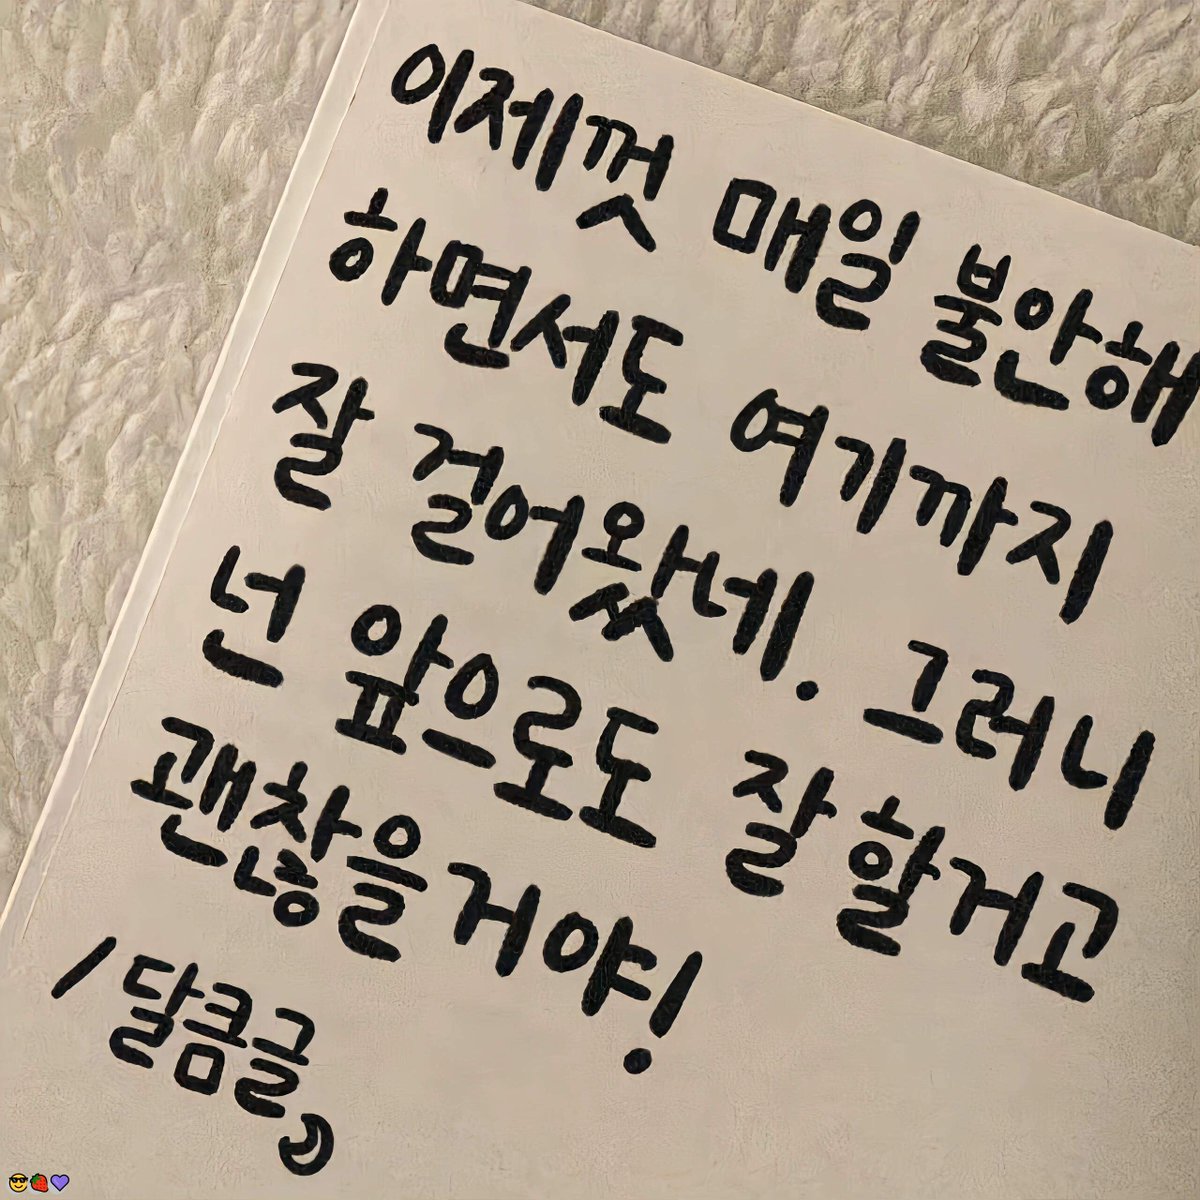 이제껏 매일 불안해
하면서도 여기까지
잘 걸어왔네. 그러니
넌 앞으로도 잘 할거고
괜찮을거야!
/달큼글,